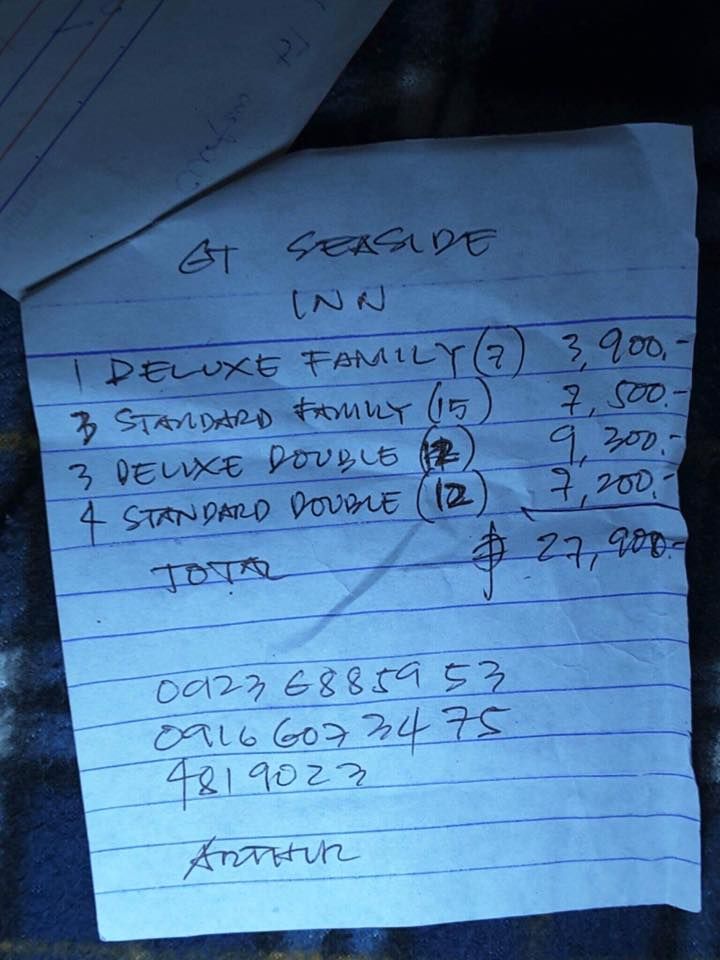 GT SEASIDE
INN
1 DELUXE FAMILY (7) 3,900.-
3 STANDARD FAMILY (15) 7,500.-
3 DELUXE DOUBLE (12) 9,300.-
4 STANDARD DOUBLE (12) 7,200.-
TOTAL ₱ 27,900.-
0923 6885953
0916 6073475
4819023
ARTHUR